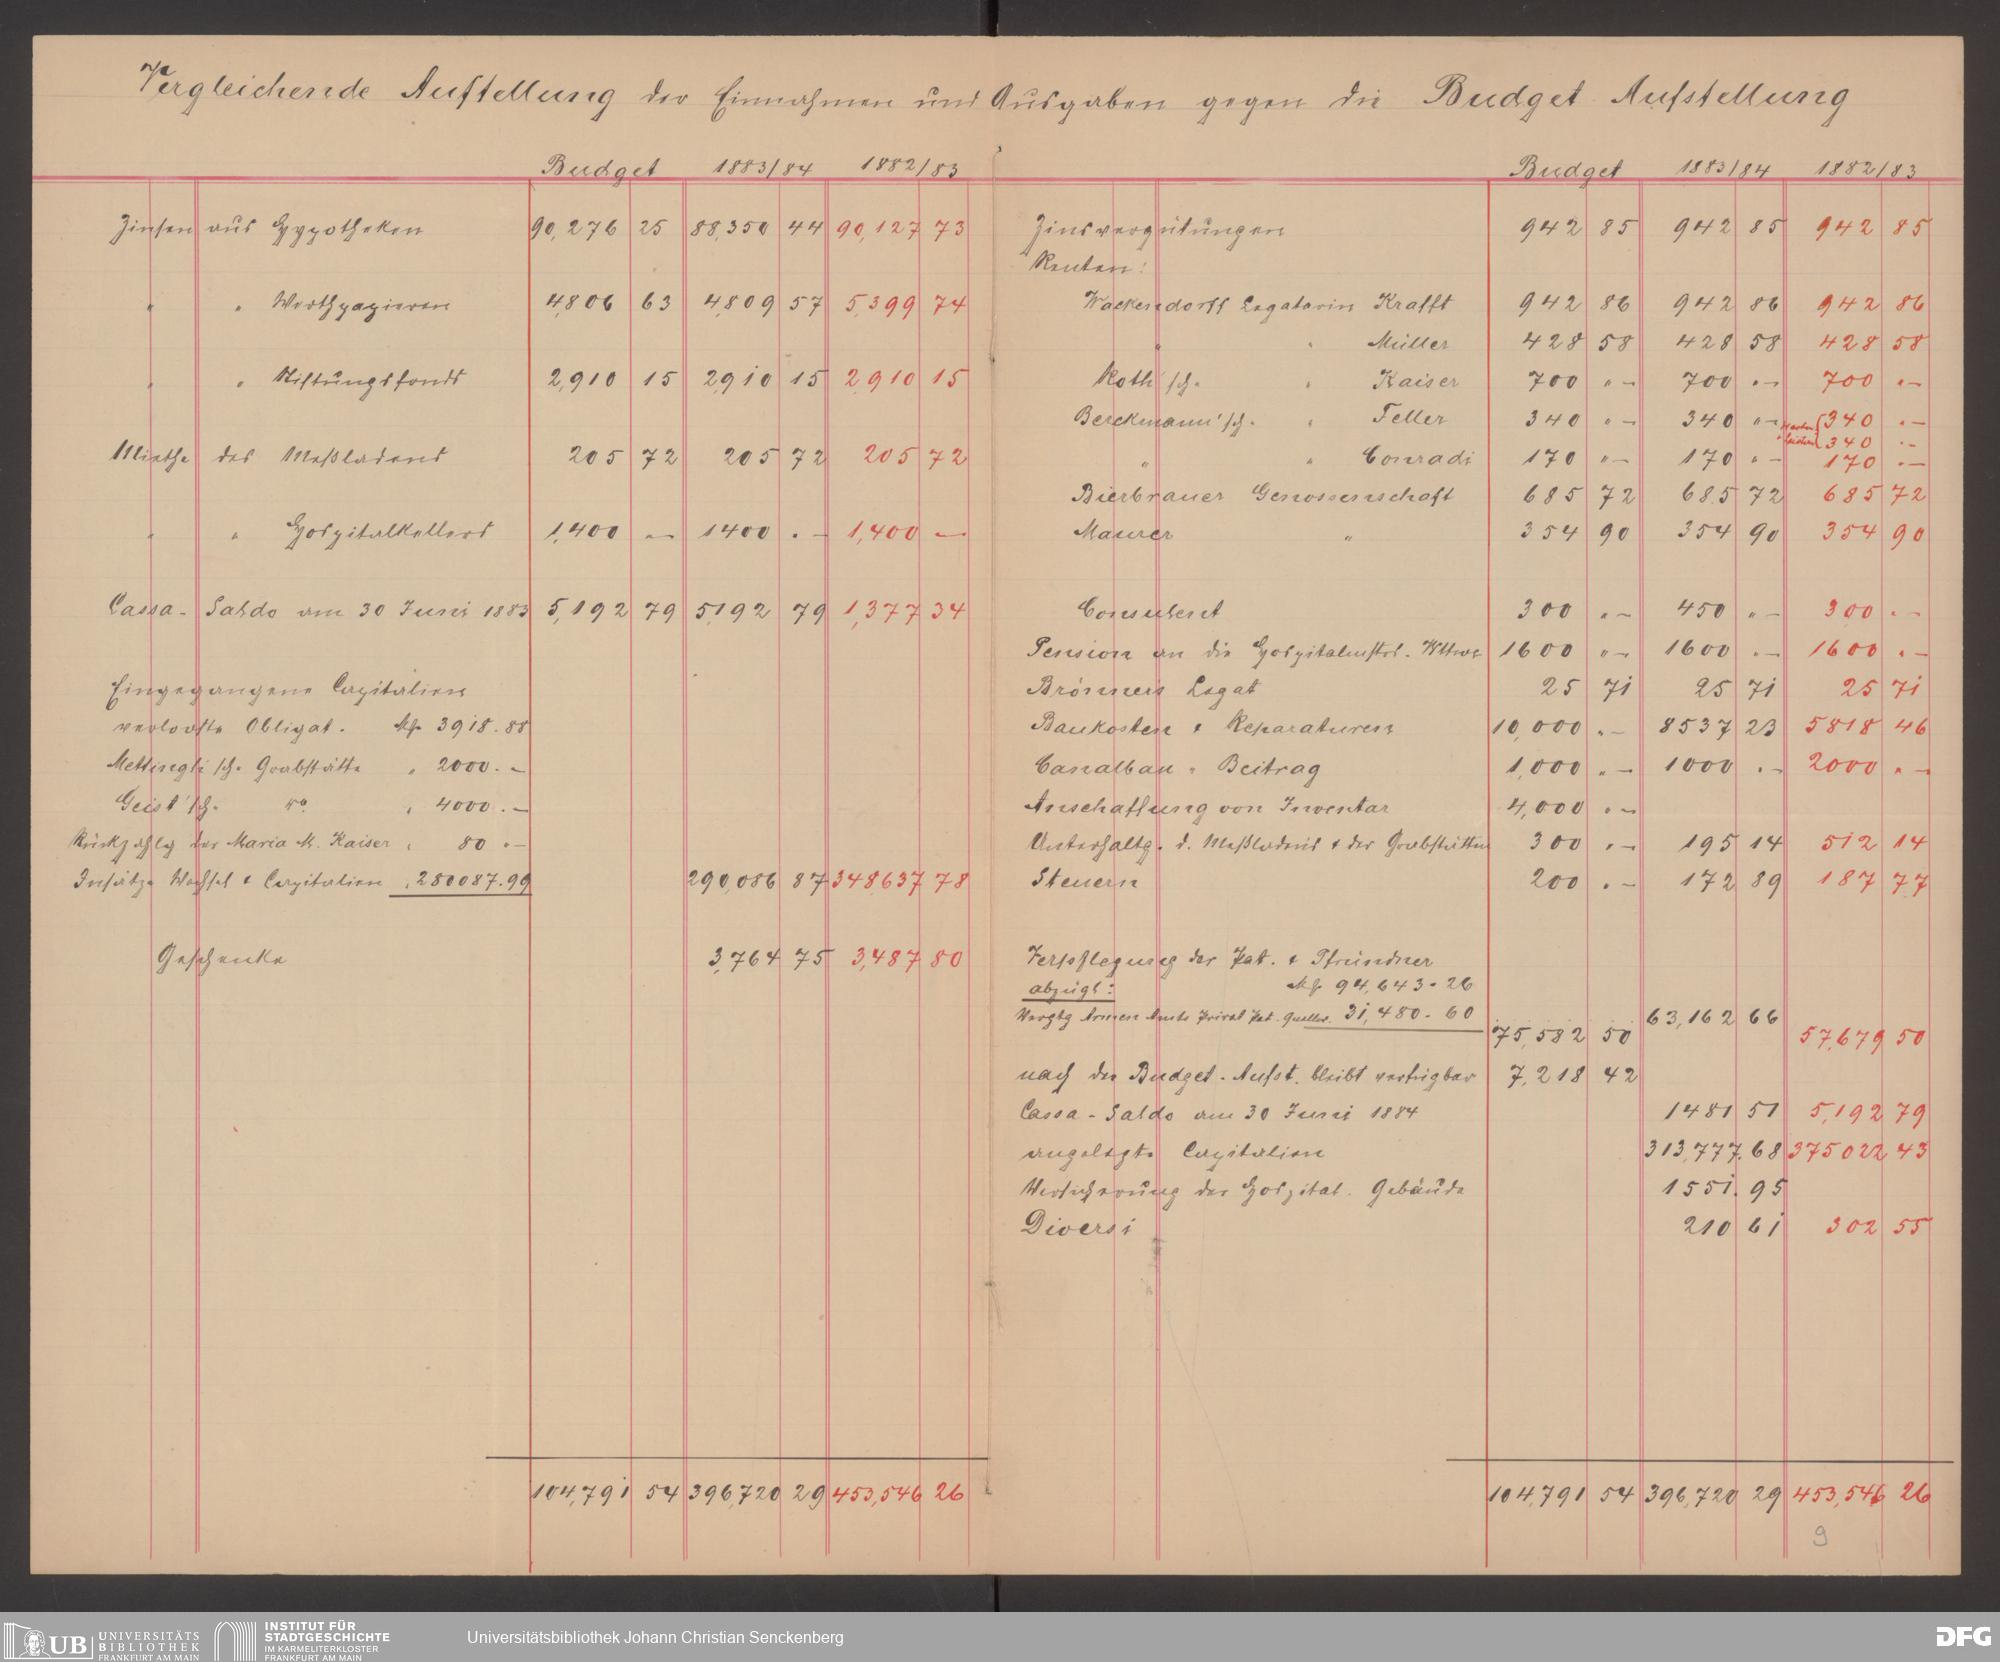 Vergleichende Aufstellung der Einnahmen und Ausgaben gegen die Budget Aufstellung
Budget 1883/84 1882/83
Zinsen aus Hypotheken 90,276 25 88,350 44 90,127 73
" " Werthpapieren 4,806 63 4,809 57 5,399 74
" " Stiftungsfonds 2,910 15 2,910 15 2,910 15
Miethe des Meßladens 205 72 205 72 205 72
" " Hospitalkellers 1,400 " — 1400 " — 1,400 —
Cassa - Saldo am 30 Juni 1883 5,192 79 5,192 79 1,377 34
Eingegangene Capitalien
verlooste Obligat. Mk 3918.88
Mettingh'sch. Grabstätte " 2000. —
Geist'sch. do " 4000. —
Rückzahlg der Maria M. Kaiser " 80 " —
Insätze Wechsel & Capitalien " 280087.99 290,086 87 348,637 78
Geschenke 3,764 75 3,487 80
104,791 54 396,720 29 453,546 26
Budget 1883/84 1882/83
Zinsvergütungen 942 85 942 85 942 85
Renten:
Wackendorff Legatarin Krafft 942 86 942 86 942 86
" " Müller 428 58 428 58 428 58
Roth'sch. " Kaiser 700 " — 700 " — 700 " —
Berckmann'sch. " Feller 340 " — 340 " — 340 " —
340 " —
" " Conradi 170 " — 170 " — 170 " —
Bierbrauer Genossenschaft 685 72 685 72 685 72
Maurer " 354 90 354 90 354 90
Consulent 300 " — 450 " — 300 " —
Pension an die Hospitalmstrs. Wttwe 1600 " — 1600 " — 1600 " —
Brönners Legat 25 71 25 71 25 71
Baukosten & Reparaturen 10,000 " — 8537 23 5818 46
Canalbau - Beitrag 1,000 " — 1000 " — 2000 " —
Anschaffung von Inventar 4,000 " —
Unterhaltg. d. Meßladens & der Grabstätten 300 " — 195 14 512 14
Steuern 200 " — 172 89 187 77
Verpflegung der Pat. & Pfründner
abzügl: Mk 94,643. 26
Vergtg Armen Amts Privat Pat. 31,480. 60 75,582 50 63,162 66 57,679 50
nach der Budget. Aufst. bleibt verfügbar 7,218 42
Cassa - Saldo am 30 Juni 1884 1481 51 5,192 79
angelegte Capitalien 313,777.68 375022 43
Versicherung der Hospital. Gebäude 1551. 95
Diversi 210 61 302 55
104,791 54 396,720 29 453,546 26
9
UB UNIVERSITÄTS BIBLIOTHEK FRANKFURT AM MAIN
INSTITUT FÜR STADTGESCHICHTE IM KARMELITERKLOSTER FRANKFURT AM MAIN
Universitätsbibliothek Johann Christian Senckenberg
DFG